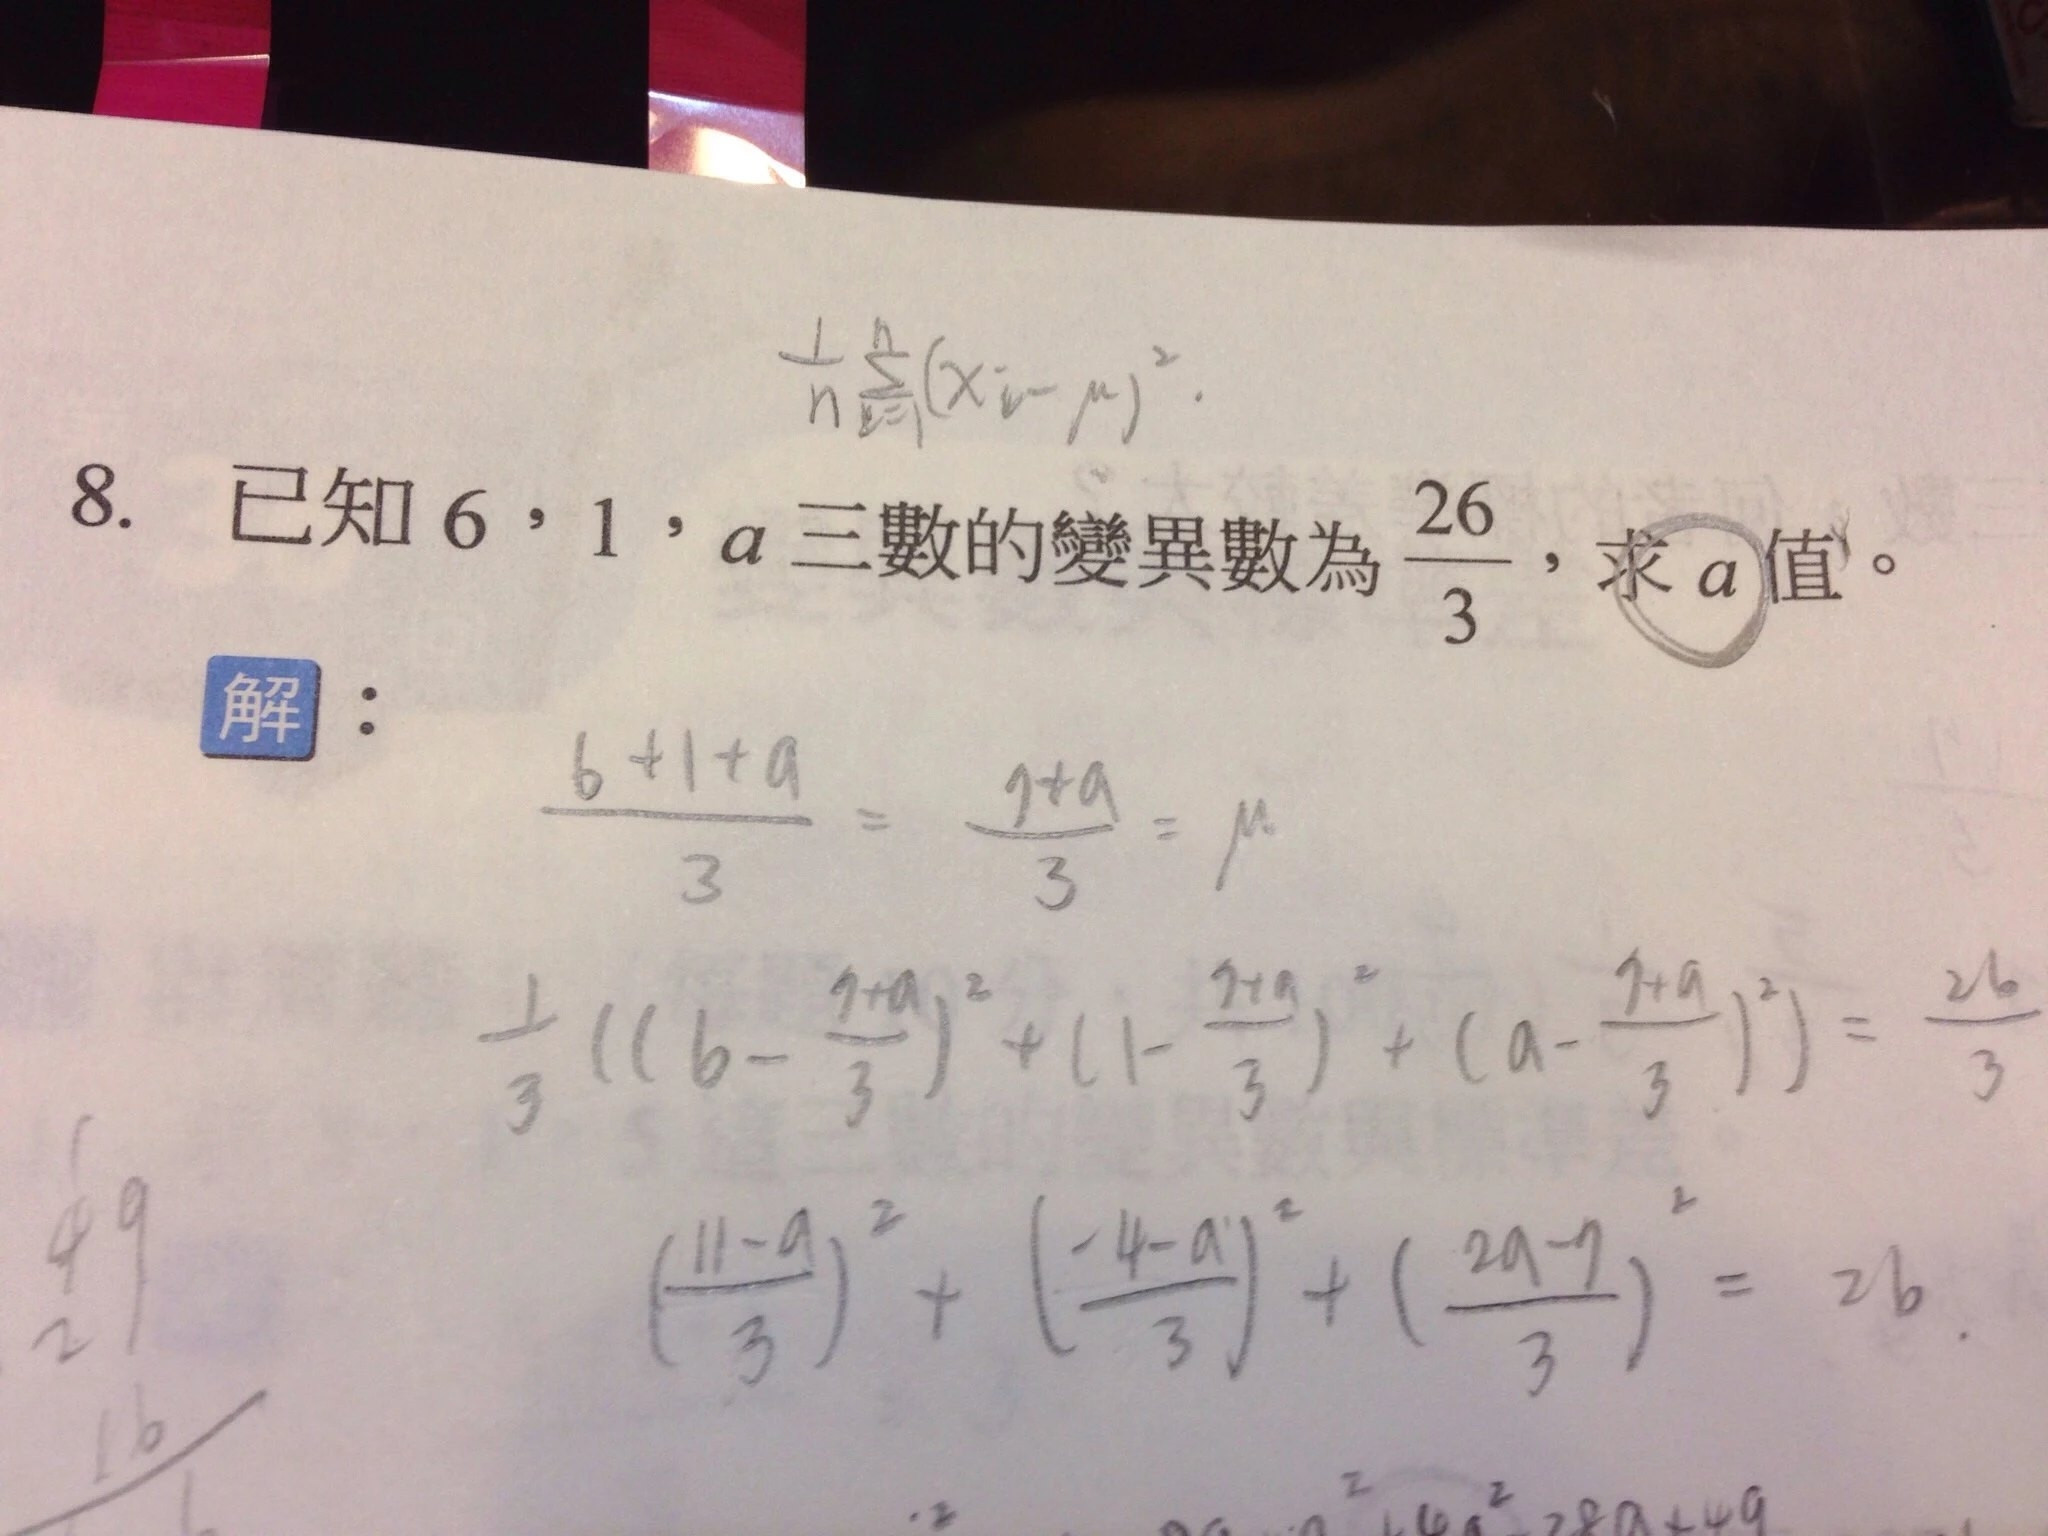 1/n Σ_{i=1}^{n} (x_i - μ)².
8. 已知 6,1,a 三數的變異數為 26/3,求 a 值。
解:
(6+1+a)/3 = (7+a)/3 = μ
1/3 ((6 - (7+a)/3)² + (1 - (7+a)/3)² + (a - (7+a)/3)²) = 26/3
((11-a)/3)² + ((-4-a)/3)² + ((2a-7)/3)² = 26.
49
21
16
+4a²-28a+49